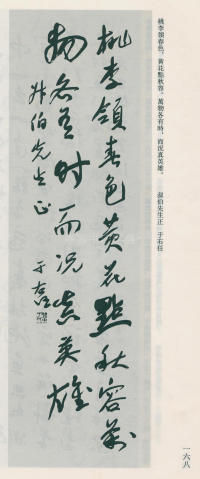 桃李領春色，黃花點秋容，萬物各有時，而況真英雄。
叔伯先生正　于右任
桃李領春色黃花點秋容萬
物各有时而況真英雄
叔伯先生正
于右任
一六八